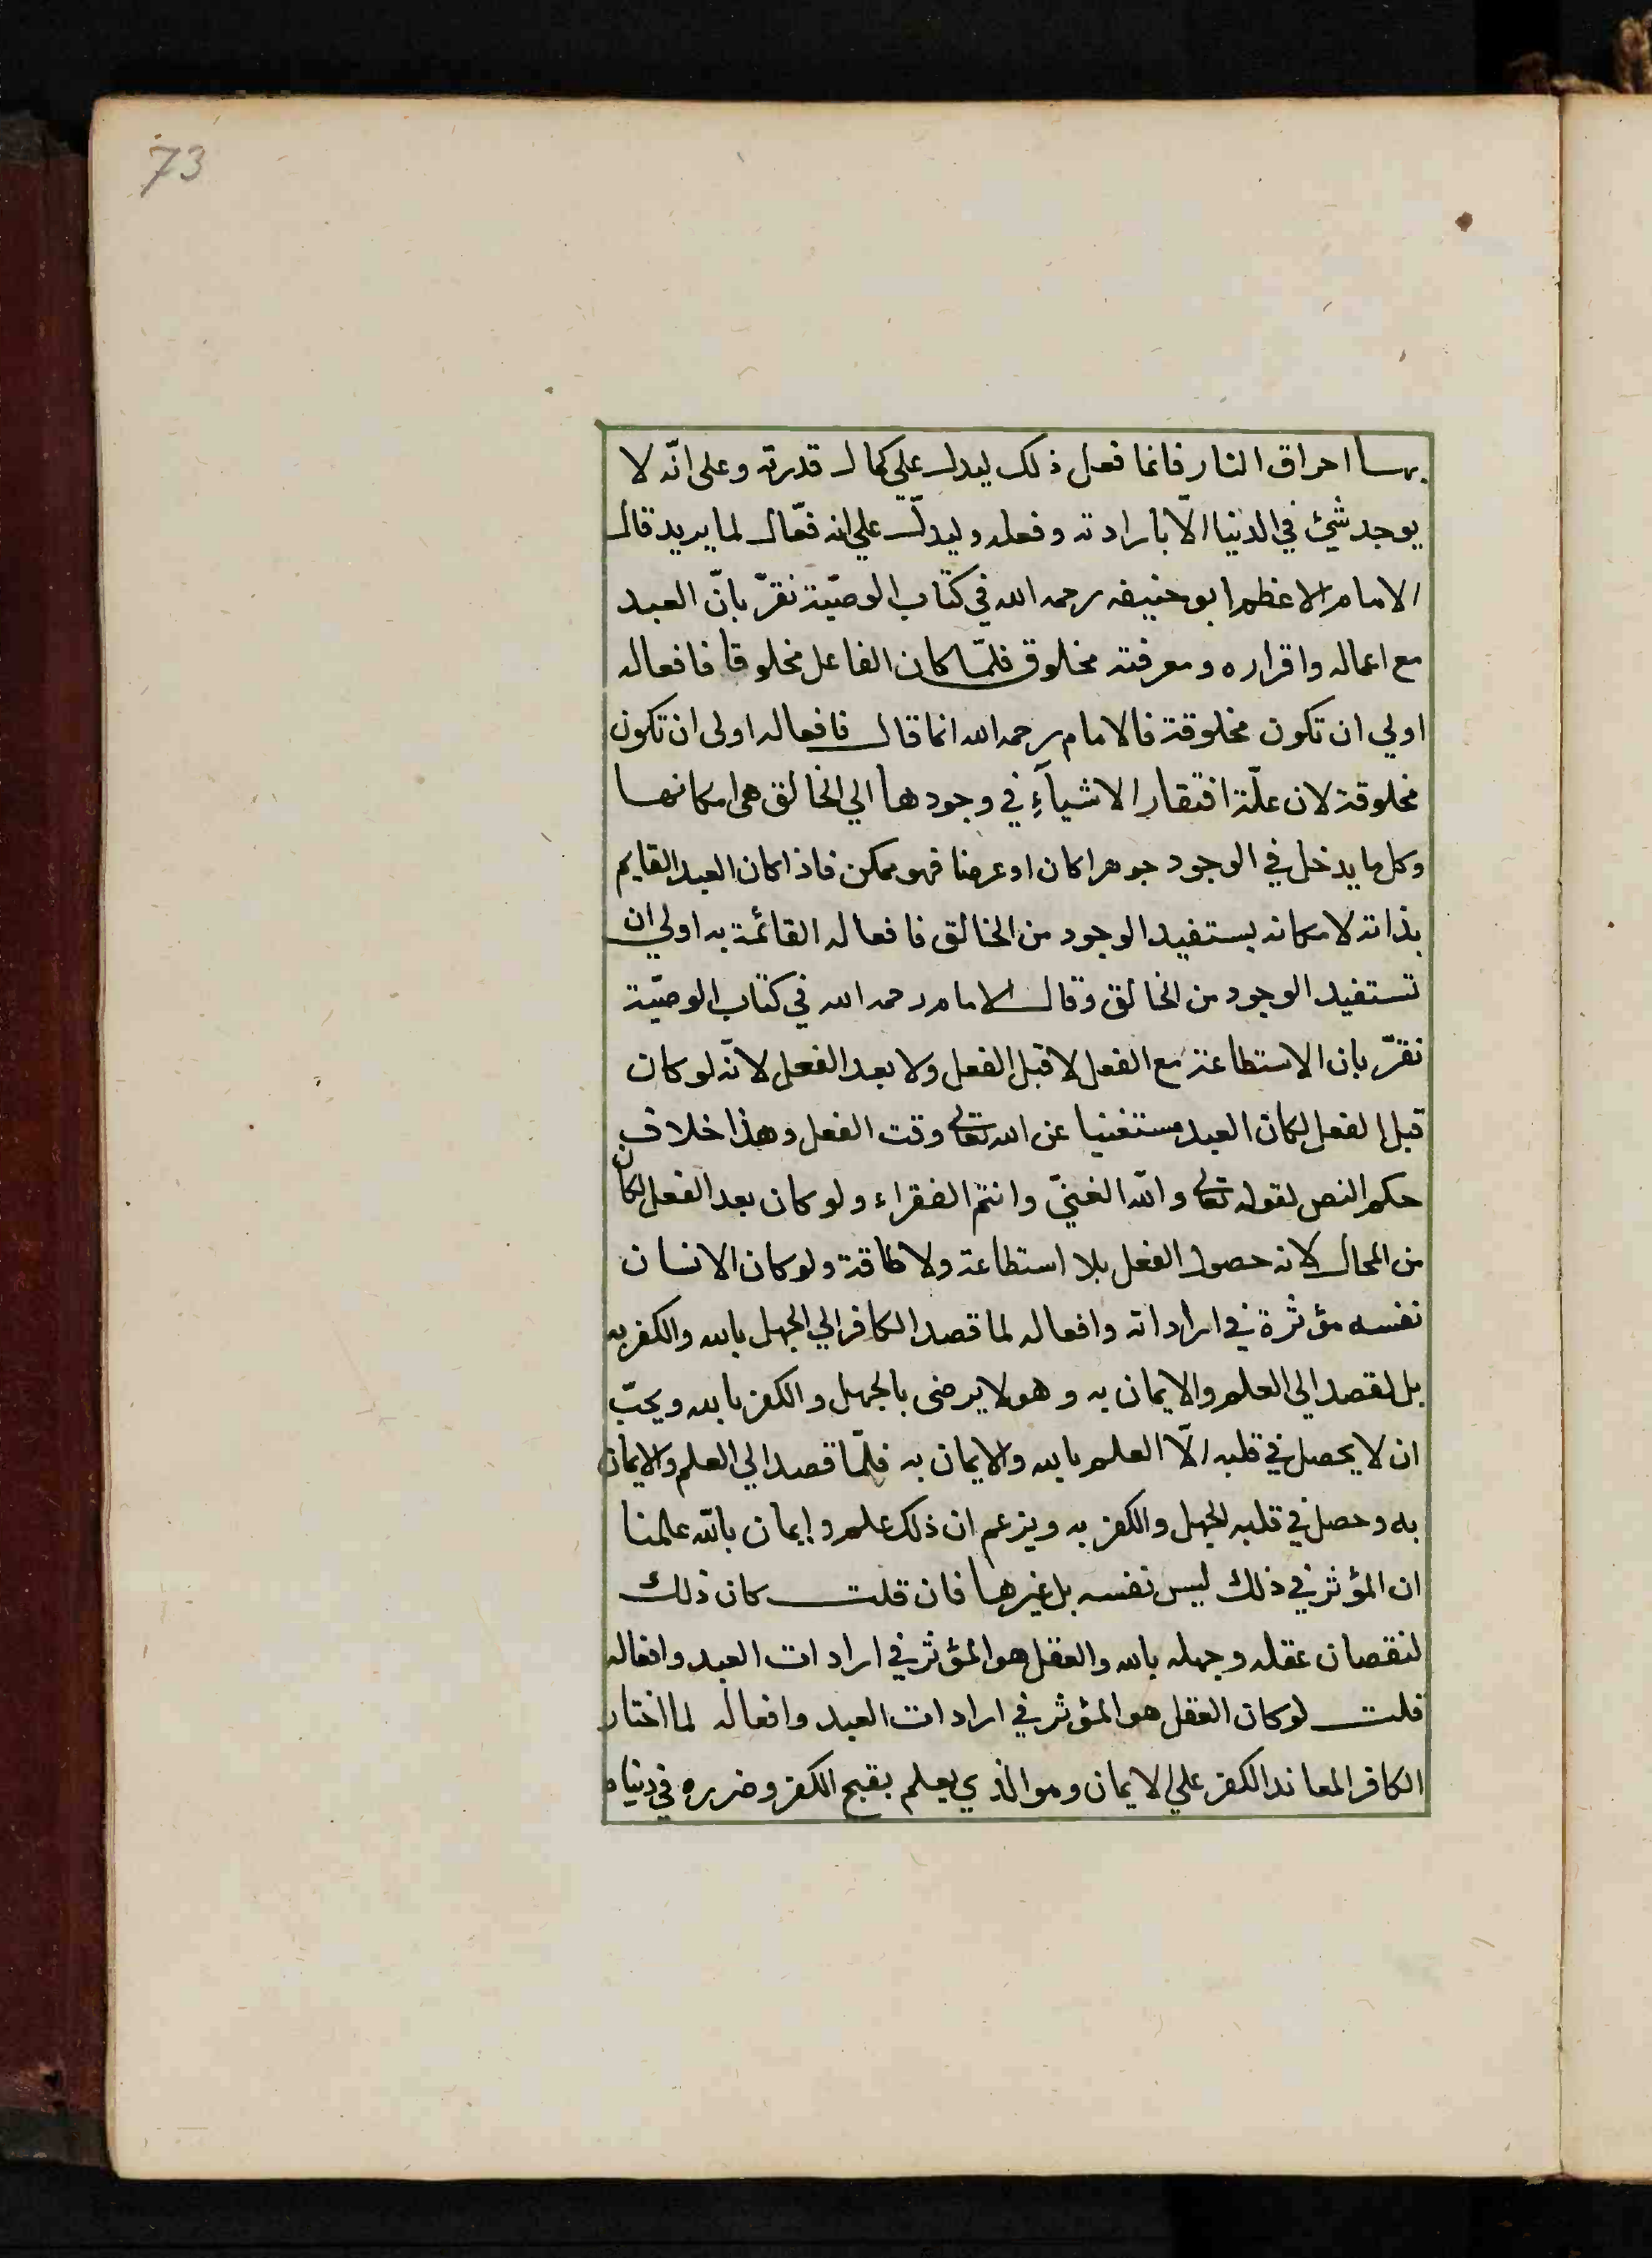 73
بها احراق النار فانما فعل ذلك ليدل علي كمال قدرته وعلى انّه لا
يوجد شيئ في الدنيا الّا بارادته وفعله وليدلّ علي انه فعّال لما يريد قال
الامام الاعظم ابو حنيفه رحمه الله في كتاب الوصيّة نقرّ بانّ العبد
مع اعماله واقراره ومعرفته مخلوق فلمّا كان الفاعل مخلوقا فافعاله
اولي ان تكون مخلوقة فالامام رحمه الله انما قال فافعاله اولى ان تكون
مخلوقة لان علّة افتقار الاشيآءِ في وجودها الي الخالق هى امكانها
وكل ما يدخل في الوجود جوهرا كان او عرضا فهو ممكن فاذا كان العبد القايم
بذاته لامكانه يستفيد الوجود من الخالق فافعاله القائمة به اولي ان
تستفيد الوجود من الخالق وقال الامام رحمه الله في كتاب الوصيّة
نقرّ بان الاستطاعة مع الفعل لا قبل الفعل ولا بعد الفعل لانّه لو كان
قبل الفعل لكان العبد مستغنيا عن الله تعالى وقت الفعل وهذا خلاف
حكم النص لقوله تعالى والله الغنيّ وانتم الفقراء ولو كان بعد الفعل لكان
من المحال لانه حصول الفعل بلا استطاعة ولا طاقة ولو كان الانسان
نفسه مؤثرة في اراداته وافعاله لما قصد الكافر الي الجهل بالله والكفر به
بل لقصد الى العلم والايمان به وهو لا يرضى بالجهل والكفر بالله ويحبّ
ان لا يحصل في قلبه الّا العلم بالله والايمان به فلمّا قصد الي العلم والايمان
به وحصل في قلبه الجهل والكفر به ويزعم ان ذلك علم وإيمان بالله علمنا
ان المؤثر في ذلك ليس نفسه بل غيرها فان قلت كان ذلك
لنقصان عقله وجهله بالله والعقل هو المؤثر في ارادات العبد وافعاله
قلت لو كان العقل هو المؤثر في ارادات العبد وافعاله لما اختار
الكافر المعاند الكفر علي الايمان وهو الذي يعلم بقبح الكفر وضرره في دنياه